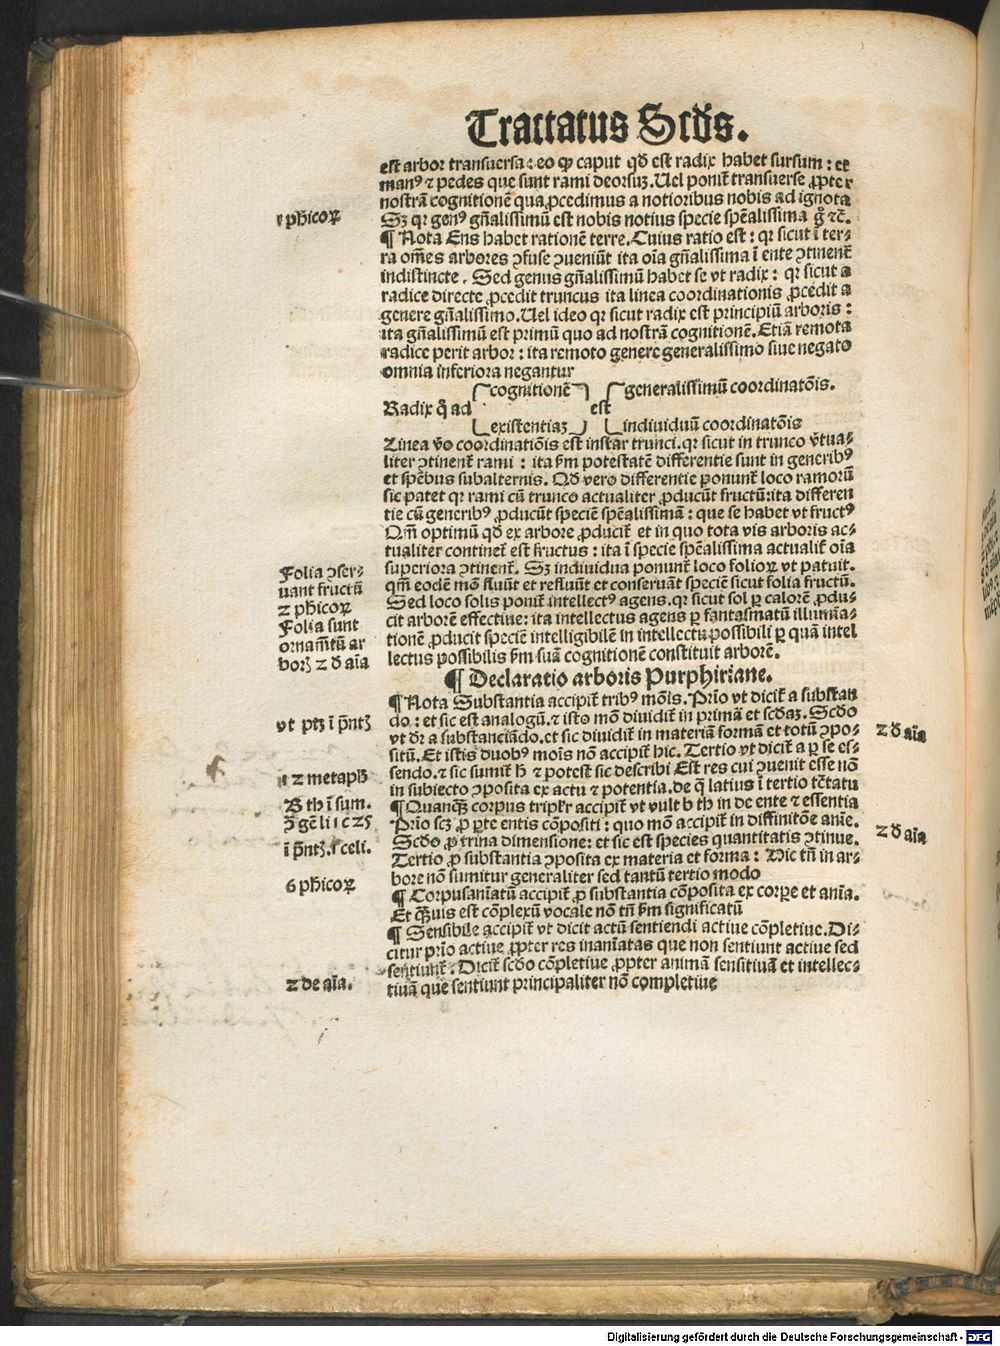 Tractatus Scd̄s.
est arbor transuersa: eo ꝙ caput qd̄ est radix habet sursum: et
manꝰ ⁊ pedes que sunt rami deorsuꝫ. Uel ponit̄ transuerse ꝓpter
nostrā cognitionē qua ꝓcedimus a notioribus nobis ad ignota
1 phicoꝝ
Sꝫ qꝛ genꝰ gn̄alissimū est nobis notius specie spēalissima g̊ ⁊c̄.
¶ Nota Ens habet rationē terre. Cuius ratio est: qꝛ sicut ī ter-
ra om̄es arbores ꝯfuse ꝯueniūt ita oīa gn̄alissima ī ente ꝯtinent̄
indistincte. Sed genus gn̄alissimū habet se vt radix: qꝛ sicut a
radice directe ꝓcedit truncus ita linea coordinationis ꝓcedit a
genere gn̄alissimo. Uel ideo qꝛ sicut radix est principiū arboris:
ita gn̄alissimū est primū quo ad nostrā cognitionē. Etiā remota
radice perit arbor: ita remoto genere generalissimo siue negato
omnia inferiora negantur
cognitionē generalissimū coordinatōis.
Radix q̄ ad est
existentiaꝫ indiuiduū coordinatōis
Linea v̄o coordinatiōis est instar trunci. qꝛ sicut in trunco v̄tua-
liter ꝯtinent̄ rami: ita s̄m potestatē differentie sunt in generibꝰ
et spēbus subalternis. Qd̄ vero differentie ponunt̄ loco ramorū
sic patet qꝛ rami cū trunco actualiter ꝓducūt fructū: ita differen
tie cū generibꝰ ꝓducūt speciē spēalissimā: que se habet vt fructꝰ
Qm̄ optimū qd̄ ex arbore ꝓducit̄ et in quo tota vis arboris ac-
tualiter continet̄ est fructus: ita ī specie spēalissima actualit̄ oīa
Folia ꝯser-
uant fructū
2 phicoꝝ
Folia sunt
ornam̄tū ar
borꝭ 2 d̄ aīa
superiora ꝯtinent̄. Sꝫ indiuidua ponunt̄ loco folioꝝ vt patuit.
qm̄ eodē mō fluūt et refluūt et conseruāt speciē sicut folia fructū.
Sed loco solis ponit̄ intellectꝰ agens. qꝛ sicut sol ꝑ calorē ꝓdu-
cit arborē effectiue: ita intellectus agens ꝑ fantasmatū illumīa-
tionē ꝓducit speciē intelligibilē in intellectu possibili ꝑ quā intel
lectus possibilis s̄m suā cognitionē constituit arborē.
¶ Declaratio arboris Purphiriane.
¶ Nota Substantia accipit̄ tribꝰ mōis. Prīo vt dicit̄ a substan
vt ptꝫ ī p̄ntꝭ
do: et sic est analogū. ⁊ isto mō diuidit̄ in primā et scd̄aꝫ. Scd̄o
vt d̄r a substanciādo. et sic diuidit̄ in materiā formā et totū ꝯpo-
2 d̄ aīa
sitū. Et istis duobꝰ mōis nō accipit̄ hic. Tertio vt dicit̄ a ꝑ se es-
1 2 metaph̄
sendo. ⁊ sic sumit̄ h̄ ⁊ potest sic describi Est res cui ꝯuenit esse nō
in subiecto ꝯposita ex actu ⁊ potentia. de q̄ latius ī tertio tc̄tatu
B th ī sum.
ꝯ gēli 1 c 25
¶ Quanꝗꝫ corpus tripl̄r accipit̄ vt vult b th in de ente ⁊ essentia
Prīo scꝫ ꝓ ꝑte entis cōpositi: quo mō accipit̄ in diffinitōe anīe.
2 d̄ aīa
ī p̄ntꝭ. 1 celi.
Scd̄o ꝓ trina dimensione: et sic est species quantitatis ꝯtinue.
Tertio ꝓ substantia ꝯposita ex materia et forma: Hic tn̄ in ar-
6 phicoꝝ
bore nō sumitur generaliter sed tantū tertio modo
¶ Corpus aīatū accipit̄ ꝓ substantia cōposita ex corꝑe et anīa.
Et ꝗꝫuis est cōplexū vocale nō tn̄ s̄m significatū
¶ Sensibile accipit̄ vt dicit actū sentiendi actiue cōpletiue. Di-
citur prīo actiue ꝓpter res inanīatas que non sentiunt actiue sed
sentiunt̄. Dicit̄ scd̄o cōpletiue ꝓpter animā sensitiuā et intellec-
2 de aīa.
tiuā que sentiunt principaliter nō completiue
Digitalisierung gefördert durch die Deutsche Forschungsgemeinschaft - DFG